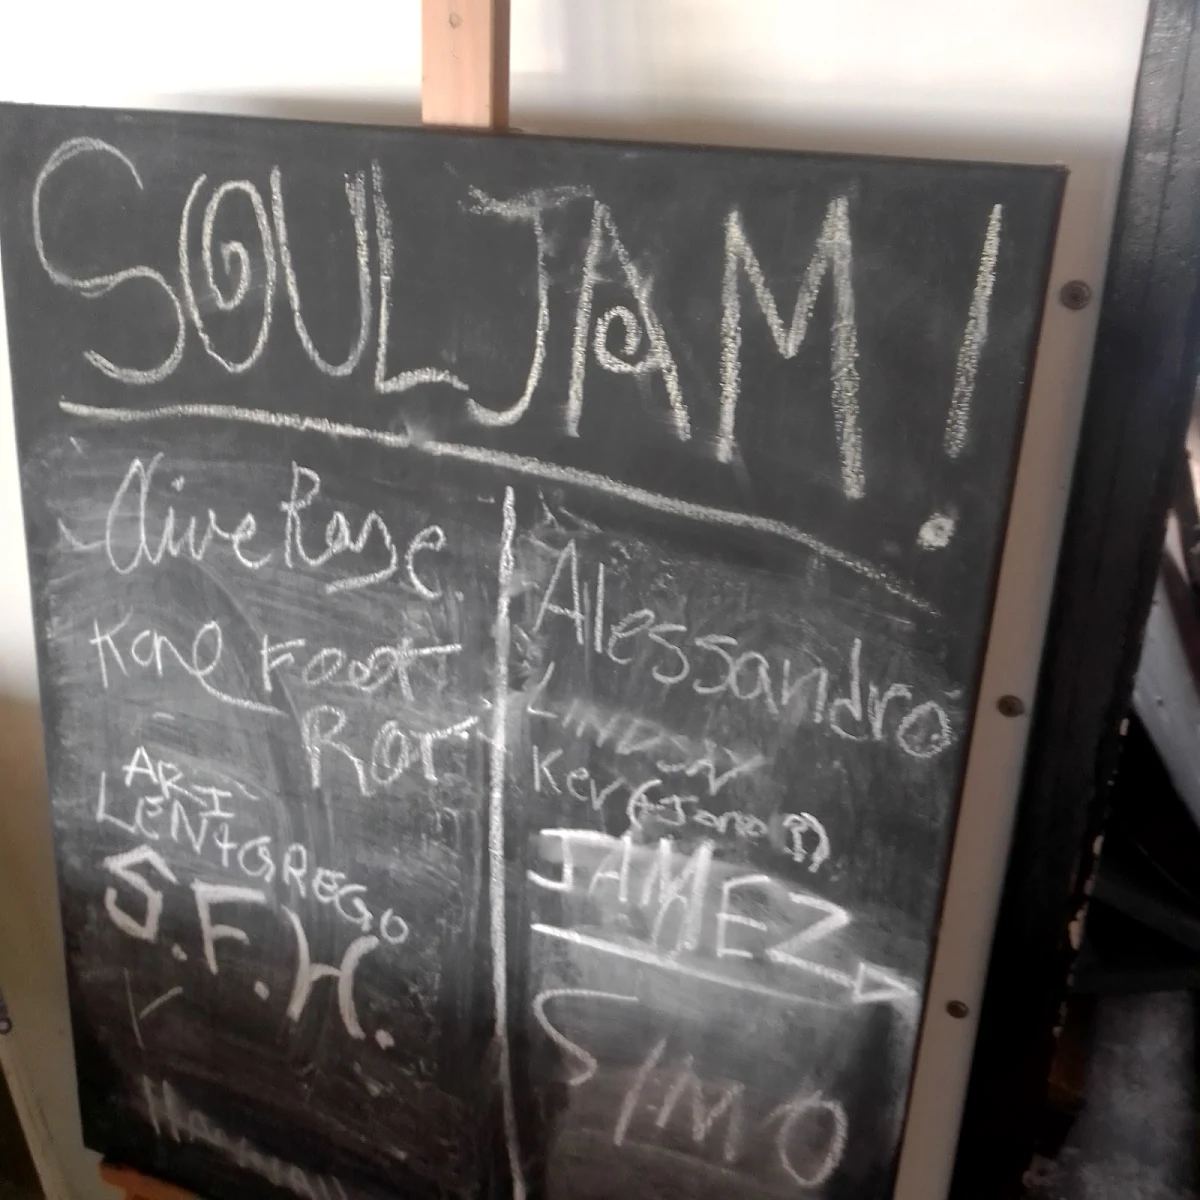 SOUL JAM!
Olive Rose
Foot
Rot
ARI
LEN+GREGO
S.F.H.
Alessandro
LINDSAY
Kev (+Jono?)
JAMEZ
SIMO